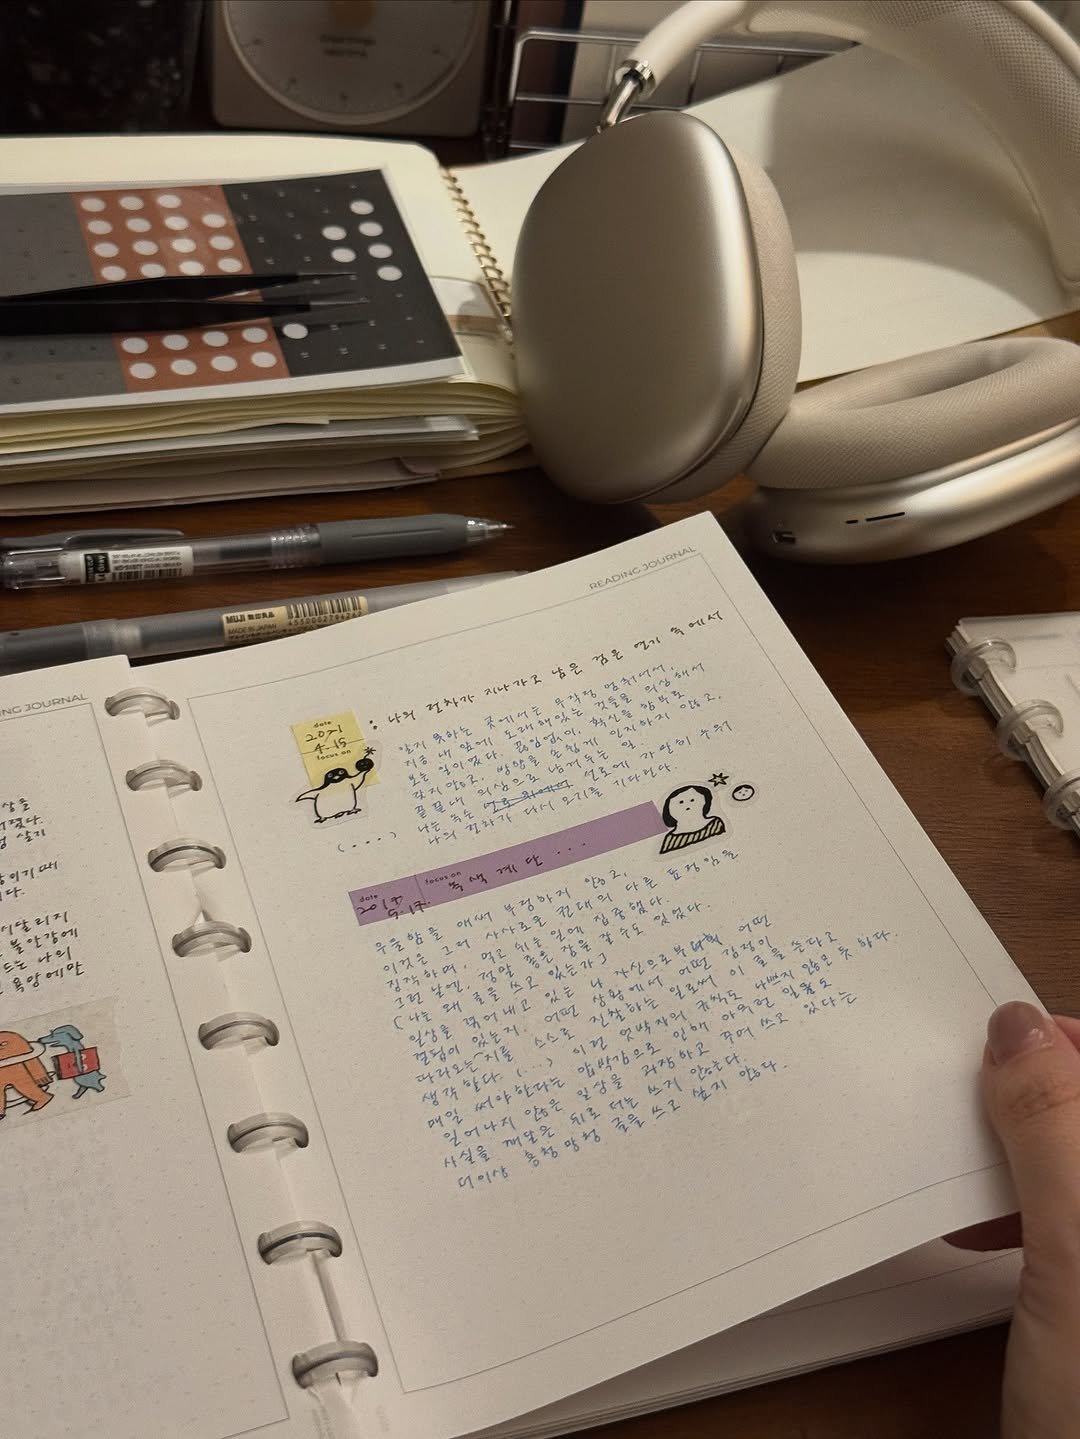 MUJI 無印良品
MADE IN JAPAN
4550002704262
NG JOURNAL
상을
점 살지
이기 때
다.
이 달리지
불안감에
드는 나의
욕망에만
READING JOURNAL
: 나의 전차가 지나가고 남은 검은 연기 속에서
date
2021
4-15
focus on
알지 못하는 곳에서는 무작정 멈춰서서,
지금 내 앞에 도래해있는 것들을 의심해서
보는 일이었다. 끊임없이, 확신을 함부로
갖지 않고, 방향을 손쉽게 인지하지 않고,
끝끝내 의심으로 남겨두는 일.
(....) 나는 죽은 선로에 가만히 누워
나의 전차가 다시 오기를 기다린다.
date
2017
5.17
focus on
녹색 계단...
우울함을 애써 부정하지 않고,
이것은 그저 사사로운 권태의 다른 표정임을
짐작하며, 먹고 쉬는 일에 집중했다.
그런 날엔, 정말 좋은 잠을 잘 수도 있었다.
(나는 왜 글을 쓰고 있는가)
일상을 겪어내고 있는 나 자신으로부터 어떤
결핍이 있는지. 어떤 상황에서 어떤 감정이
따라오는지를 스스로 진찰하는 일로써 이 글을 쓴다고
생각한다. (...) 이런 엇박자의 규칙도 나쁘지 않은 듯 하다.
매일 써야 한다는 압박감으로 인해 아무런 일들도
일어나지 않은 일상을 과장하고 주며 쓰고 있다는
사실을 깨달은 뒤로 더는 쓰지 않는다.
더이상 흥청망청 글을 쓰고 싶지 않다.